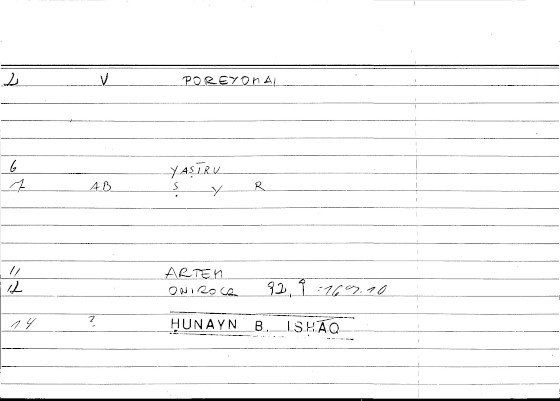 2 V POREYOMAI
6 YAṢĪRU
7 AB Ṣ Y R
11 ARTEM
12 ONIROCR 92, 9 : 169.10
14 ? ḤUNAYN B. ISḤĀQ